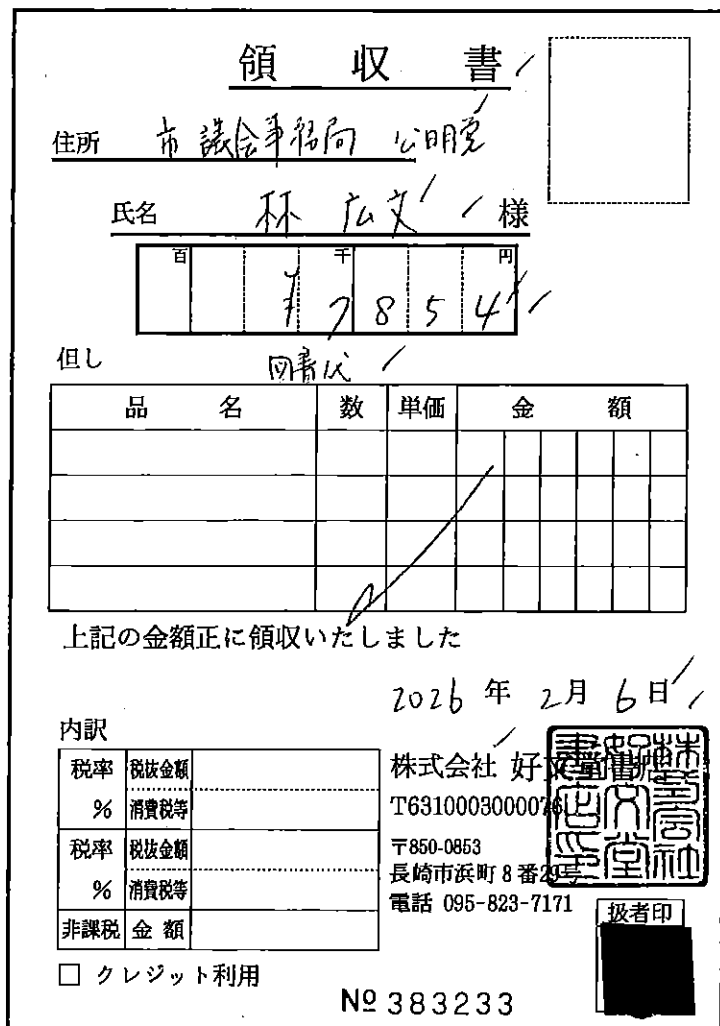 領収書
住所 市議会事務局 公明党
氏名 林 広文 様
百 千 円
¥7854
但し 図書代
品名 数 単価 金額
上記の金額正に領収いたしました
2026年2月6日
内訳
税率 税抜金額
% 消費税等
税率 税抜金額
% 消費税等
非課税 金額
□ クレジット利用
株式会社 好文堂書店
T6310003000076
〒850-0853
長崎市浜町8番29号
電話 095-823-7171
株式会社好文堂書店印
扱者印
№383233